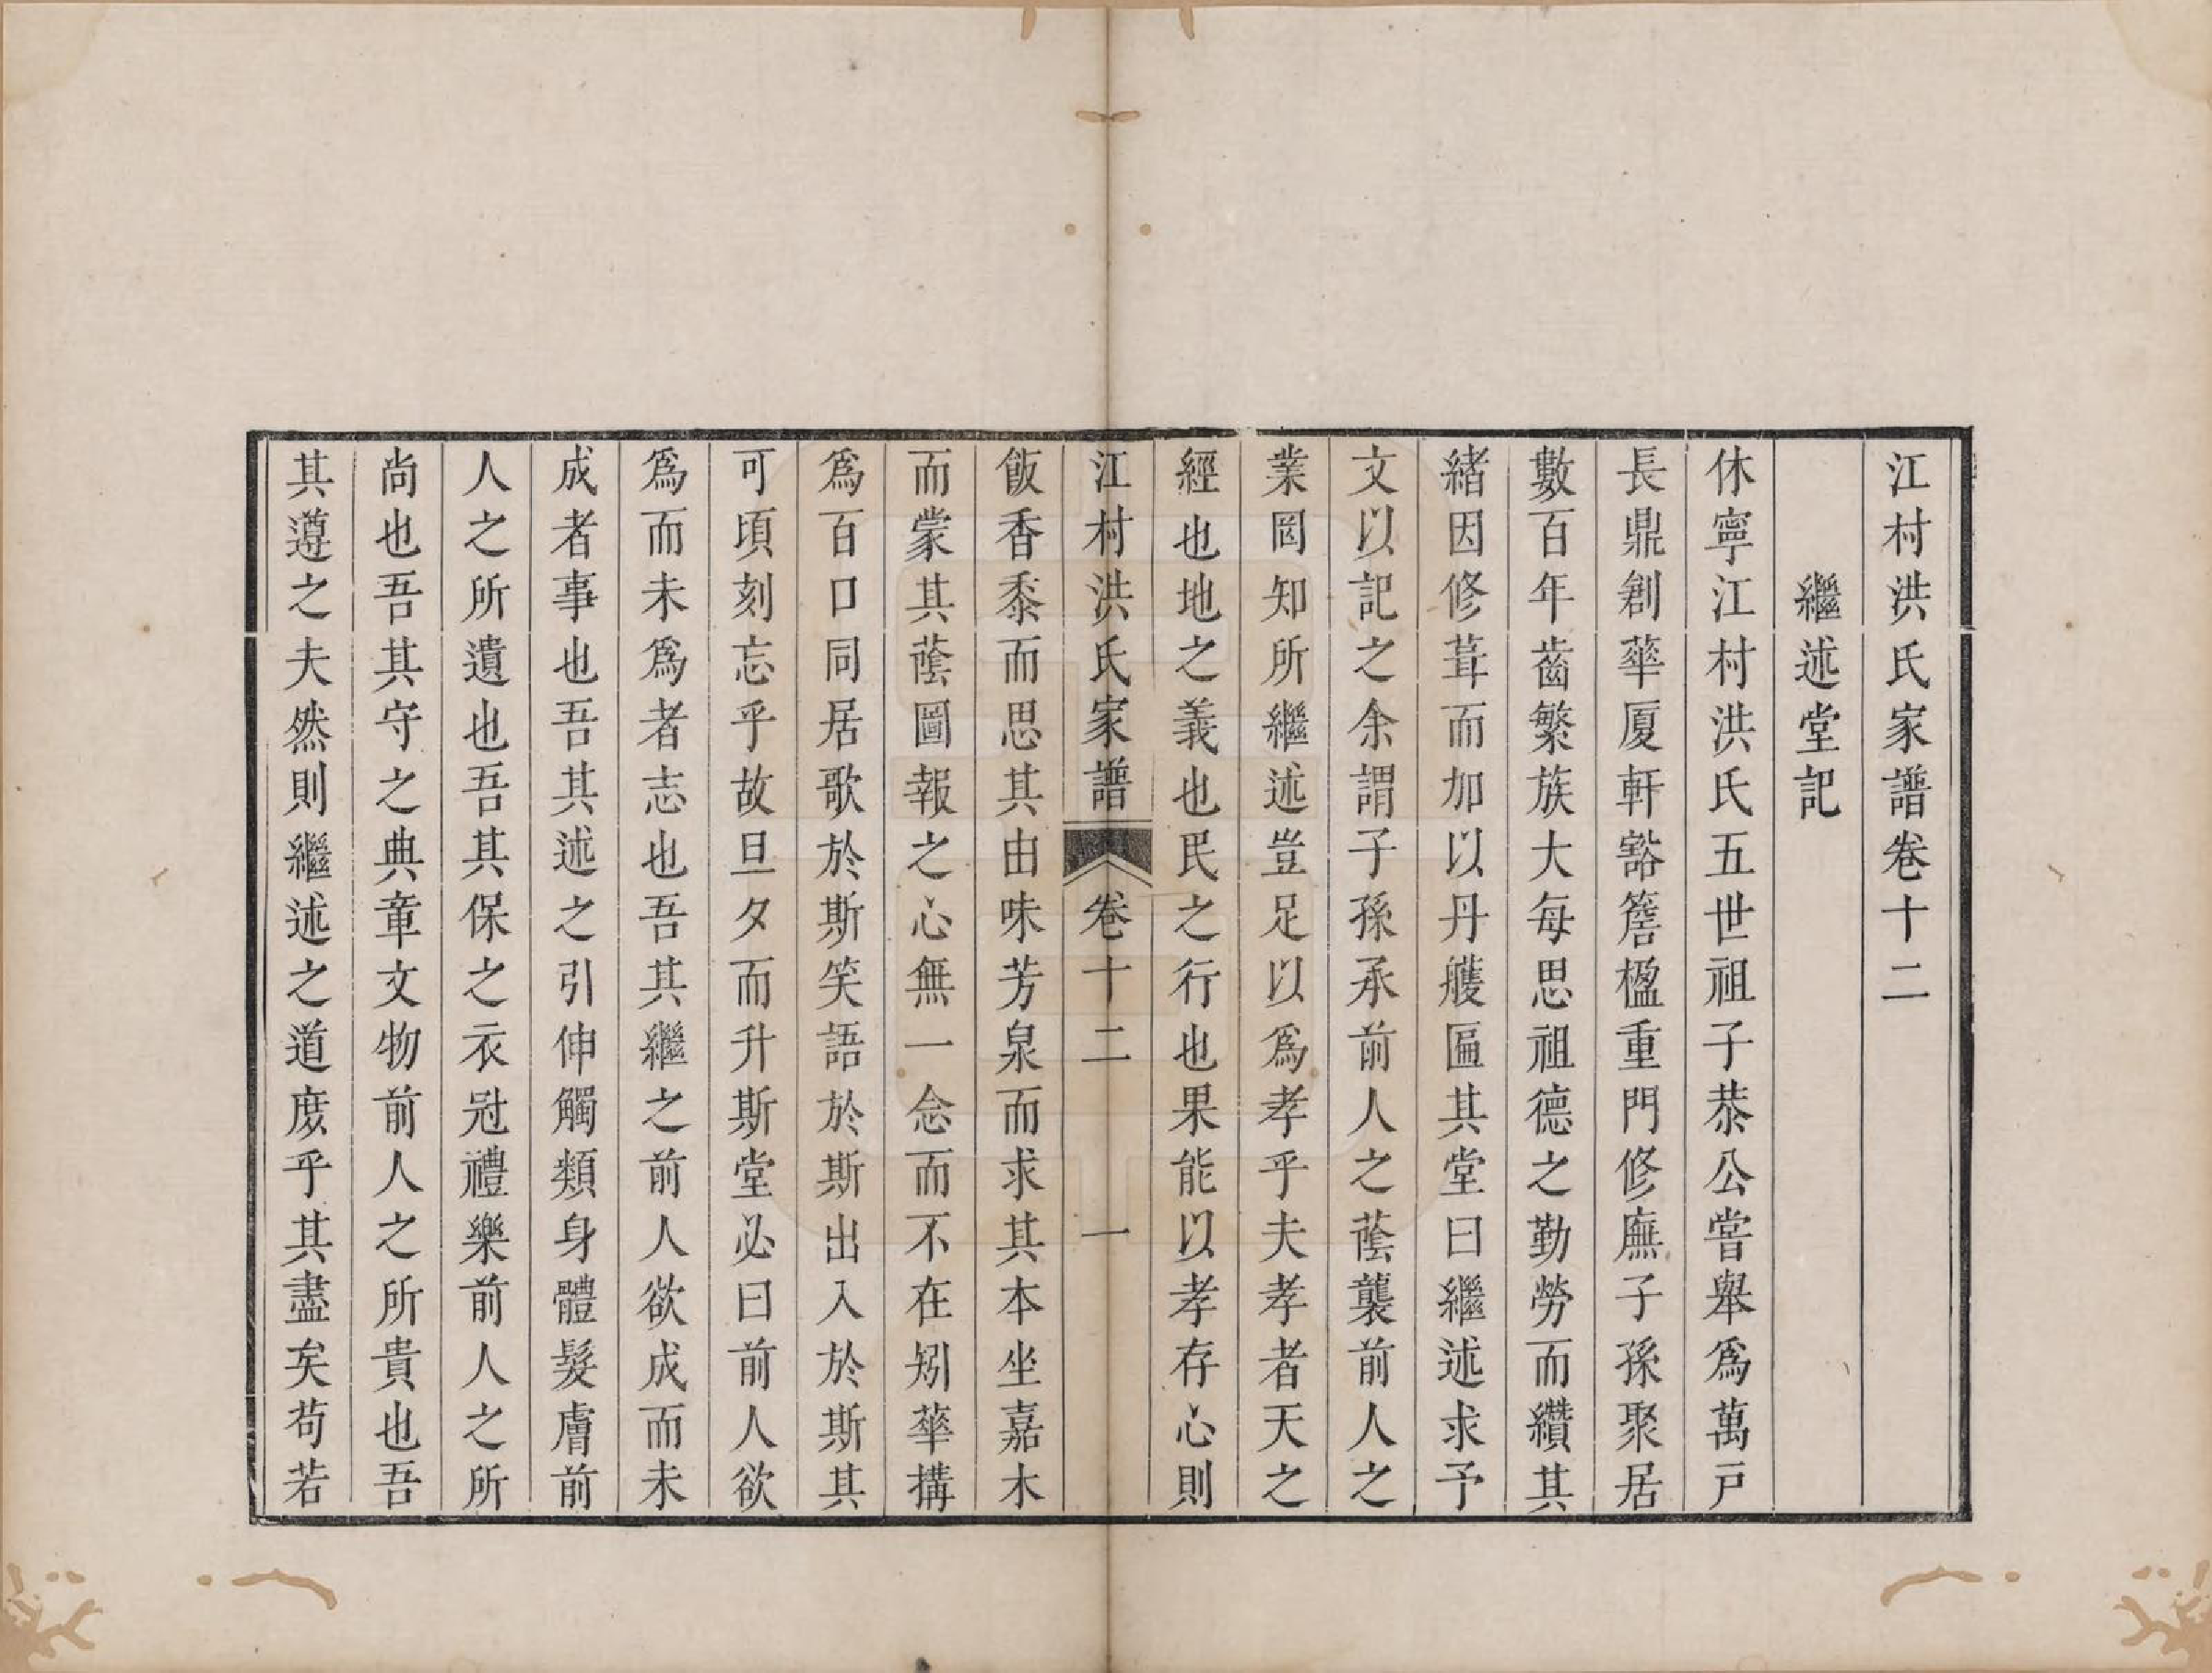 江村洪氏家譜卷十二
繼述堂記
休寧江村洪氏五世祖子恭公嘗舉爲萬戸
長鼎創華厦軒豁簷楹重門修廡子孫聚居
數百年齒繁族大每思祖德之勤勞而纘其
緒因修葺而加以丹雘匾其堂曰繼述求予
文以記之余謂子孫承前人之蔭襲前人之
業罔知所繼述豈足以爲孝乎夫孝者天之
經也地之義也民之行也果能以孝存心則
江村洪氏家譜 卷十二 一
飯香黍而思其由味芳泉而求其本坐嘉木
而蒙其蔭圖報之心無一念而不在矧華搆
爲百口同居歌於斯笑語於斯出入於斯其
可頃刻忘乎故旦夕而升斯堂必曰前人欲
爲而未爲者志也吾其繼之前人欲成而未
成者事也吾其述之引伸觸類身體髮膚前
人之所遺也吾其保之衣冠禮樂前人之所
尚也吾其守之典章文物前人之所貴也吾
其遵之夫然則繼述之道庶乎其盡矣苟若